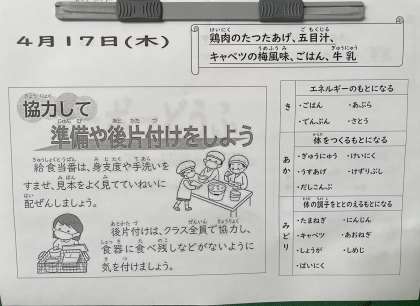 4月17日(木)
鶏肉のたつたあげ、五目汁、
キャベツの梅風味、ごはん、牛乳
協力して
準備や後片付けをしよう
給食当番は、身支度や手洗いを
すませ、見本をよく見てていねいに
配ぜんしましょう。
後片付けは、クラス全員で協力し、
食器に食べ残しなどがないように
気を付けましょう。
エネルギーのもとになる
き
・ごはん ・あぶら
・でんぷん ・さとう
体をつくるもとになる
あか
・ぎゅうにゅう ・けいにく
・うすあげ ・けずりぶし
・だしこんぶ
体の調子をととのえるもとになる
みどり
・たまねぎ ・にんじん
・キャベツ ・あおねぎ
・しょうが ・しめじ
・ばいにく